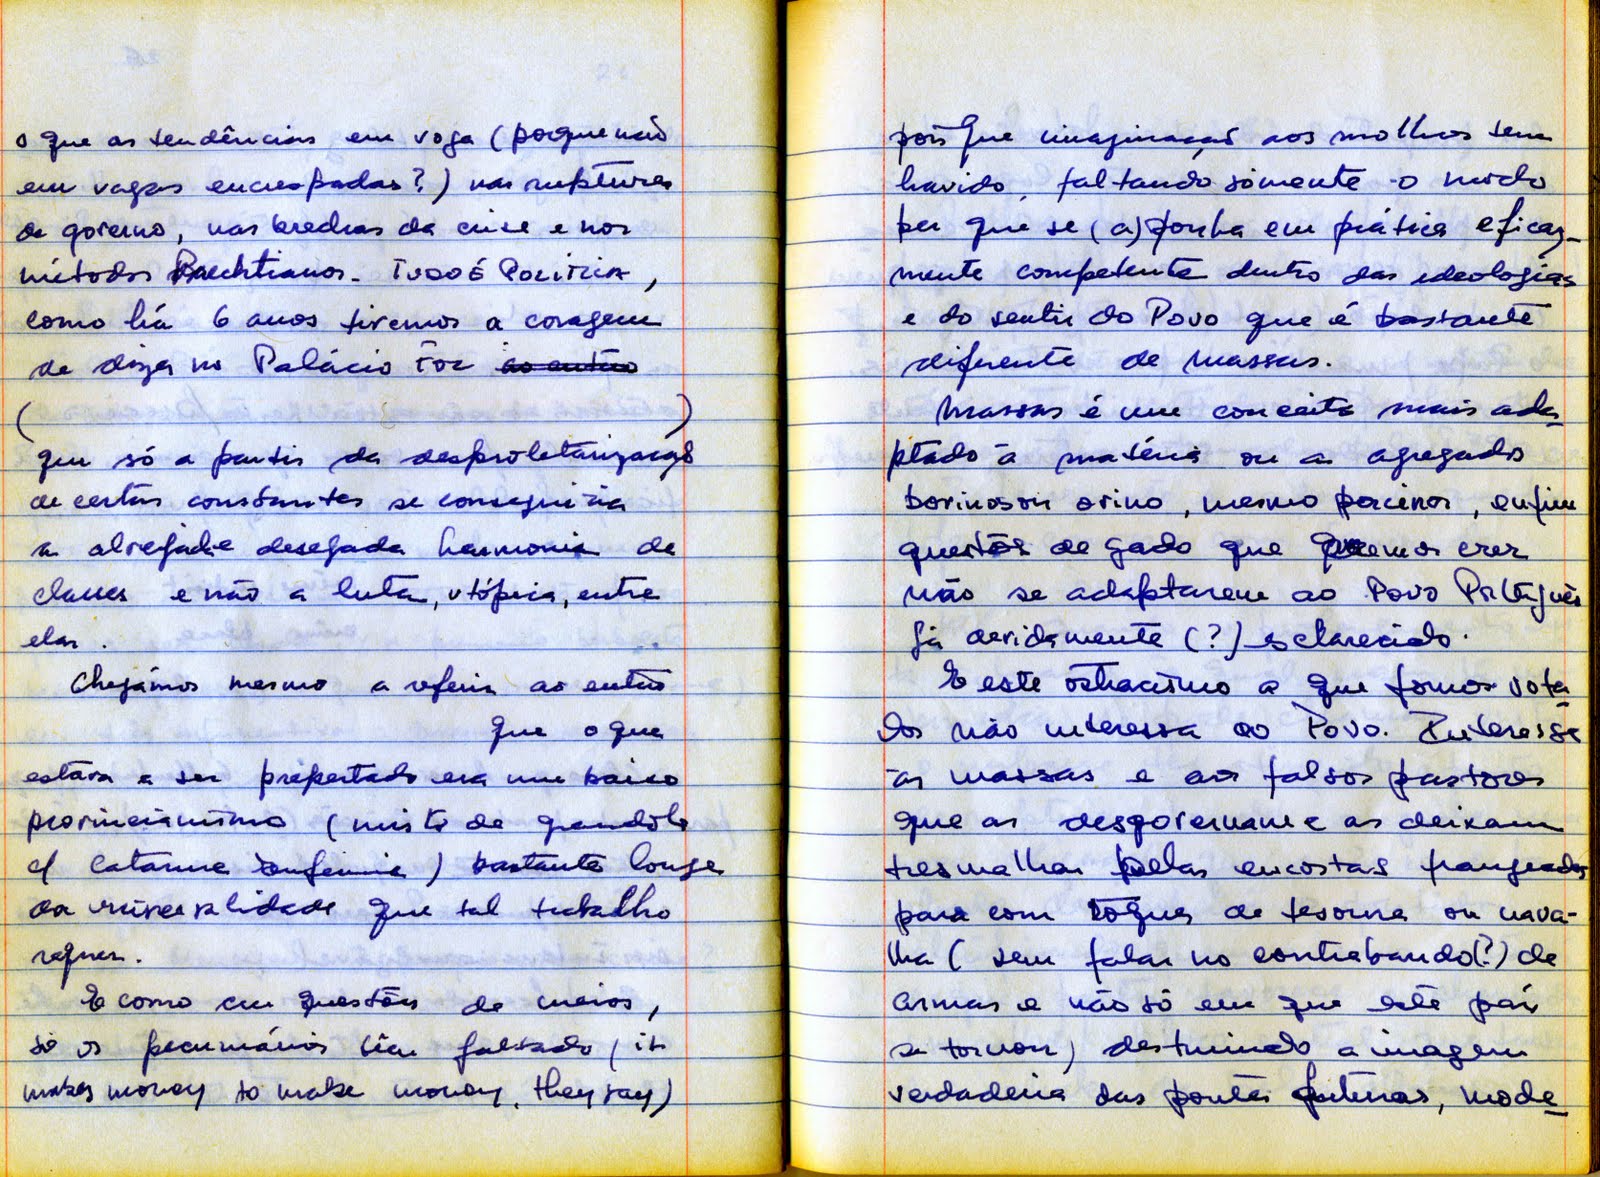 o que as tendências em voga (porque não
em vagas encrespadas?) nas rupturas
de governo, nas brechas da crise e nos
métodos Brechtianos. TUDO É POLITICA,
como há 6 anos tivemos a coragem
de dizer no Palácio Foz ao então
( )
que só a partir da desproletarização
de certas constantes se conseguiria
a almejada desejada harmonia de
classes e não a luta, utópica, entre
elas.
Chegámos mesmo a referir ao então
que o que
estava a ser projectado era um baixo
provincianismo (misto de grandola
c/ Catarina Eufémia) bastante longe
da universalidade que tal trabalho
requer.
E como em questões de meios,
só os pecuniários têm faltado (it
makes money to make money, they say)
pois que imaginação aos molhos tem
havido, faltando sòmente o modo
por que se (a) ponha em prática eficaz-
mente competente dentro das ideologias
e do sentir do Povo que é bastante
diferente de massas.
Massas é um conceito mais ada-
ptado à matéria ou ao agregado
bovino ou ovino, mesmo porcino, enfim
questões de gado que queremos crer
não se adaptarem ao Povo Português
já devidamente (?) esclarecido.
E este ostracismo a que fomos vota-
dos não interessa ao Povo. Interessa
às massas e aos falsos pastores
que as desgovernam e as deixam
tresmalhar pelas encostas
para com toques de tesoura ou nava-
lha (sem falar no contrabando(?) de
armas e não só em que este país
se tornou) destruindo a imagem
verdadeira das pontes , mode-